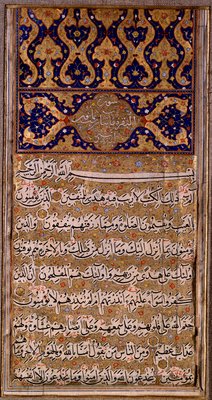 سورة
بسم الله الرحمن الرحيم
الم ذلك الكتاب لا ريب فيه هدى للمتقين الذين يؤمنون
بالغيب ويقيمون الصلوة ومما رزقناهم ينفقون والذين يؤمنون
بما انزل اليك وما انزل من قبلك وبالاخرة هم يوقنون
اولئك على هدى من ربهم واولئك هم المفلحون ان الذين
كفروا سواء عليهم ءانذرتهم ام لم تنذرهم لا يؤمنون
ختم الله على قلوبهم وعلى سمعهم وعلى ابصارهم غشاوة ولهم
عذاب عظيم ومن الناس من يقول امنا بالله وباليوم الاخر وما هم
بمؤمنين يخادعون الله والذين امنوا وما يخدعون